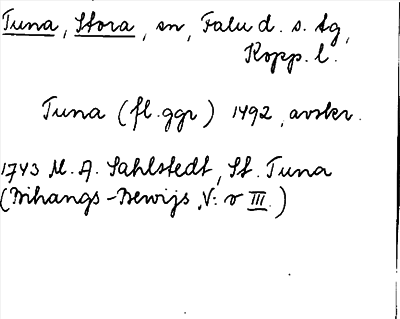 Tuna, Stora, sn, Falu d. s. tg,
Kopp. l.
Tuna (fl. ggr) 1492, avskr.
1743 M. A. Sahlstedt, St. Tuna
(Bihangs-Bewijs N:o III.)